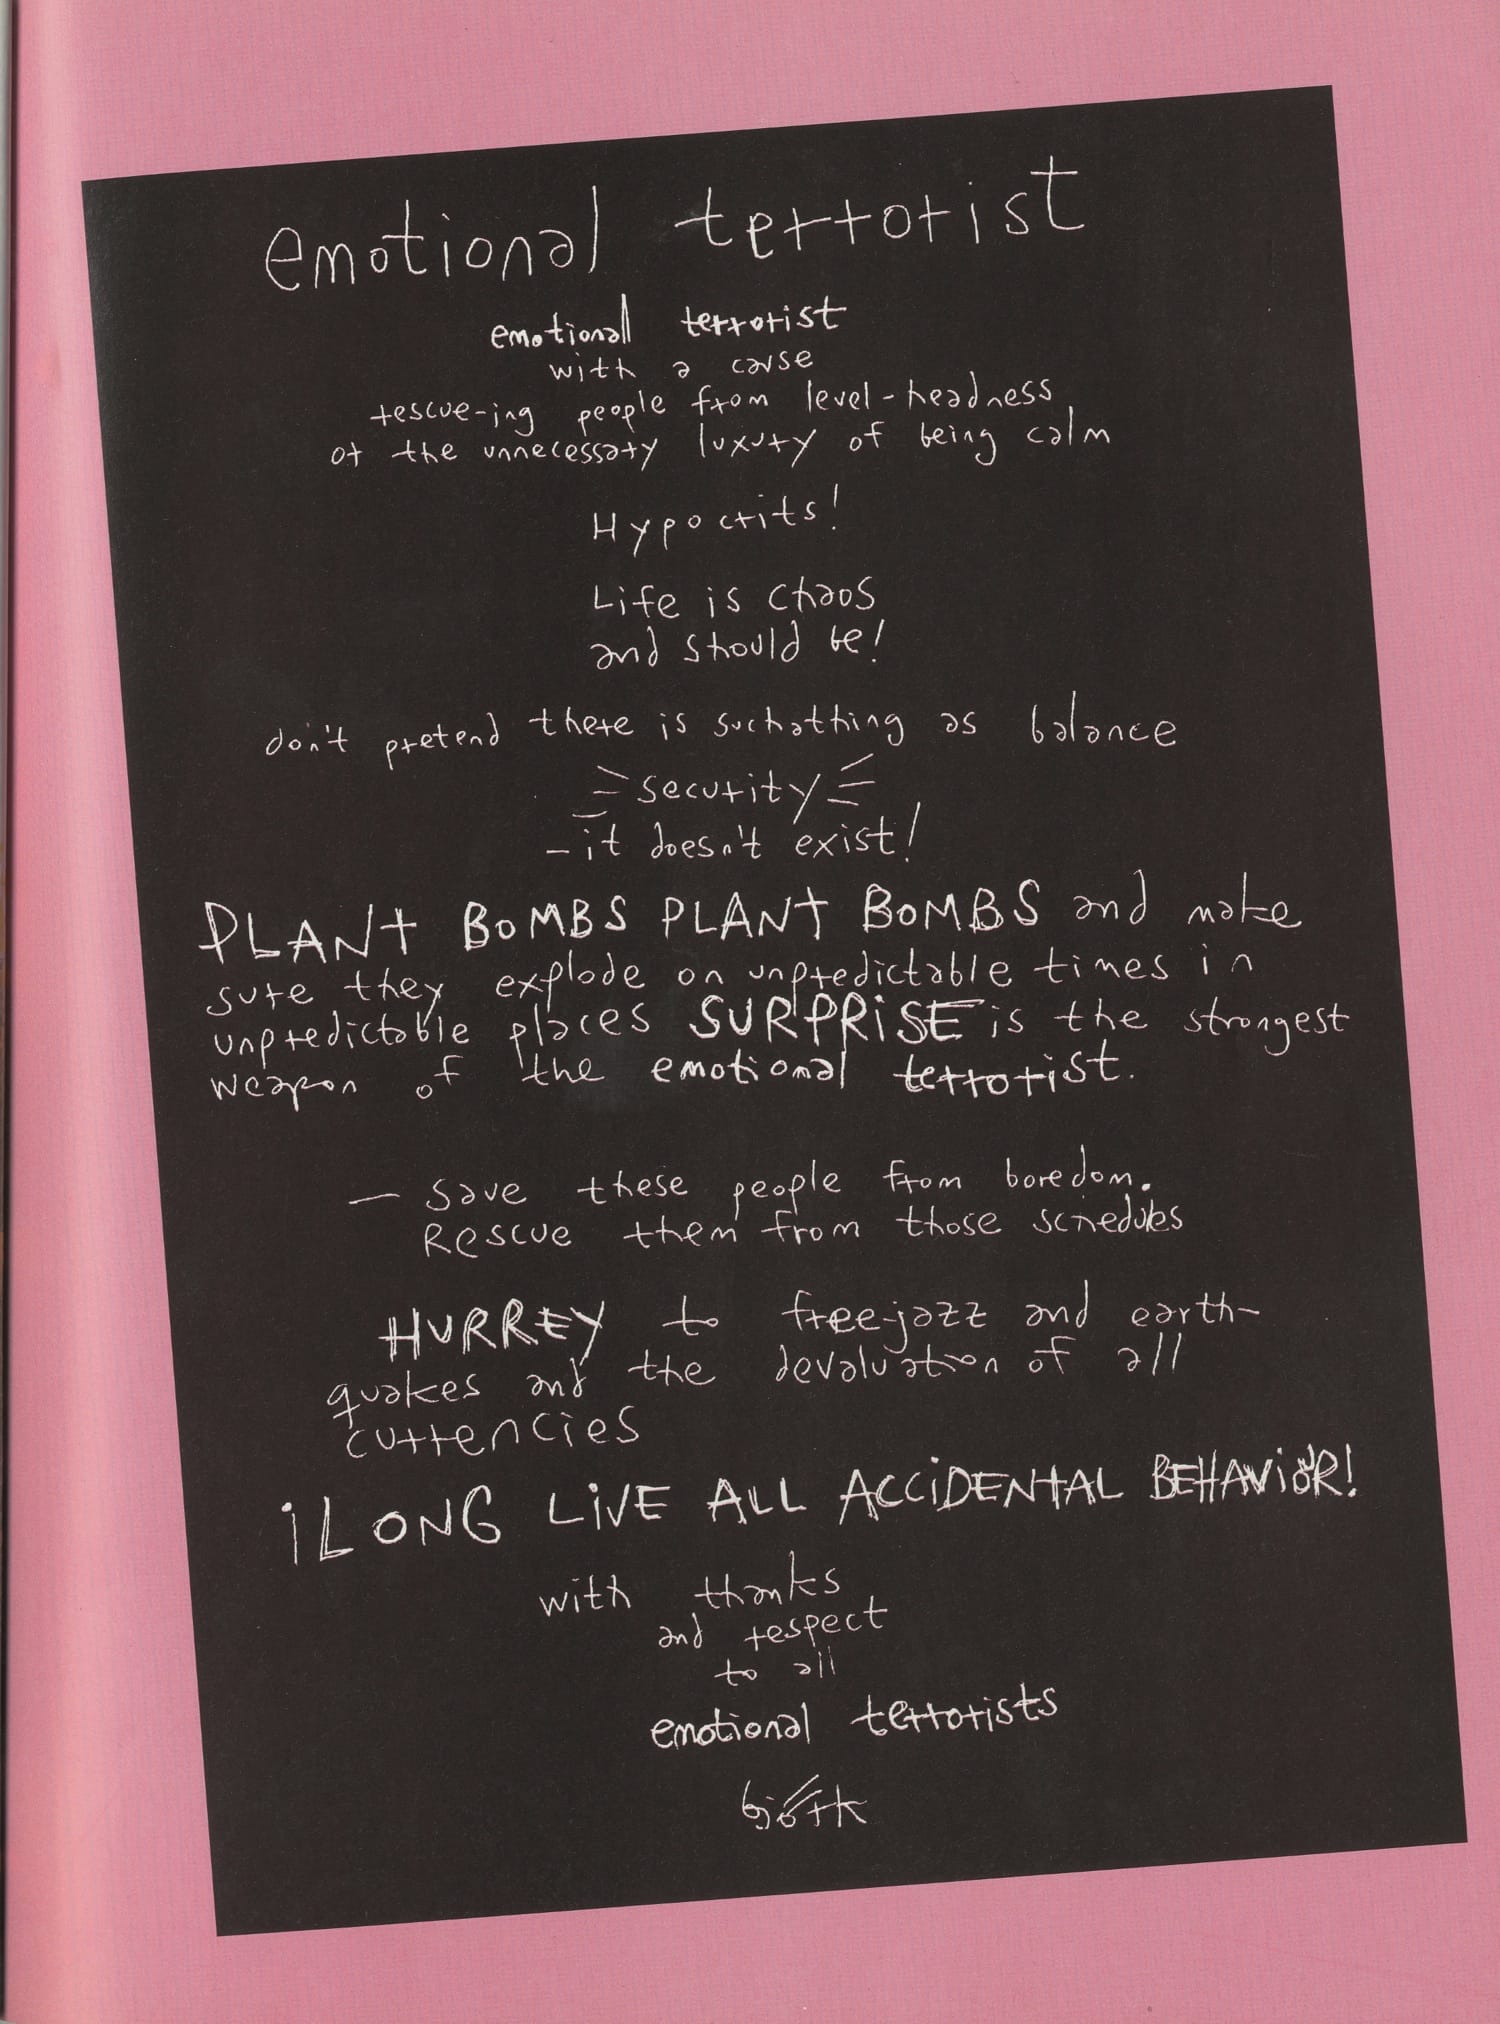 emotional terrorist
emotional terrorist
with a cause
rescue-ing people from level-headness,
or the unnecessary luxury of being calm
Hypocrits!
Life is chaos
and should be!
don't pretend there is suchathing as balance
security
- it doesn't exist!
PLANT BOMBS PLANT BOMBS and make
sure they explode on unpredictable times in
unpredictable places SURPRiSE is the strongest
weapon of the emotional terrorist.
— Save these people from boredom.
Rescue them from those schedules
HURREY to free-jazz and earth-
quakes and the devaluation of all
currencies
¡LONG LiVE ALL ACCiDENTAL BEHAViOR!
with thanks
and respect
to all
emotional terrorists
björk